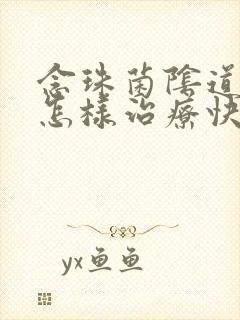 念珠菌陰道
怎樣治療快
yx鱼鱼